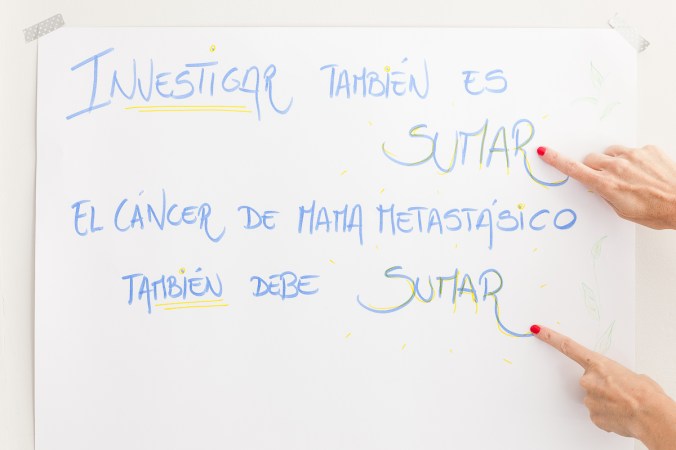 INVESTIGAR TAMBIÉN ES
SUMAR
EL CÁNCER DE MAMA METASTÁSICO
TAMBIÉN DEBE SUMAR